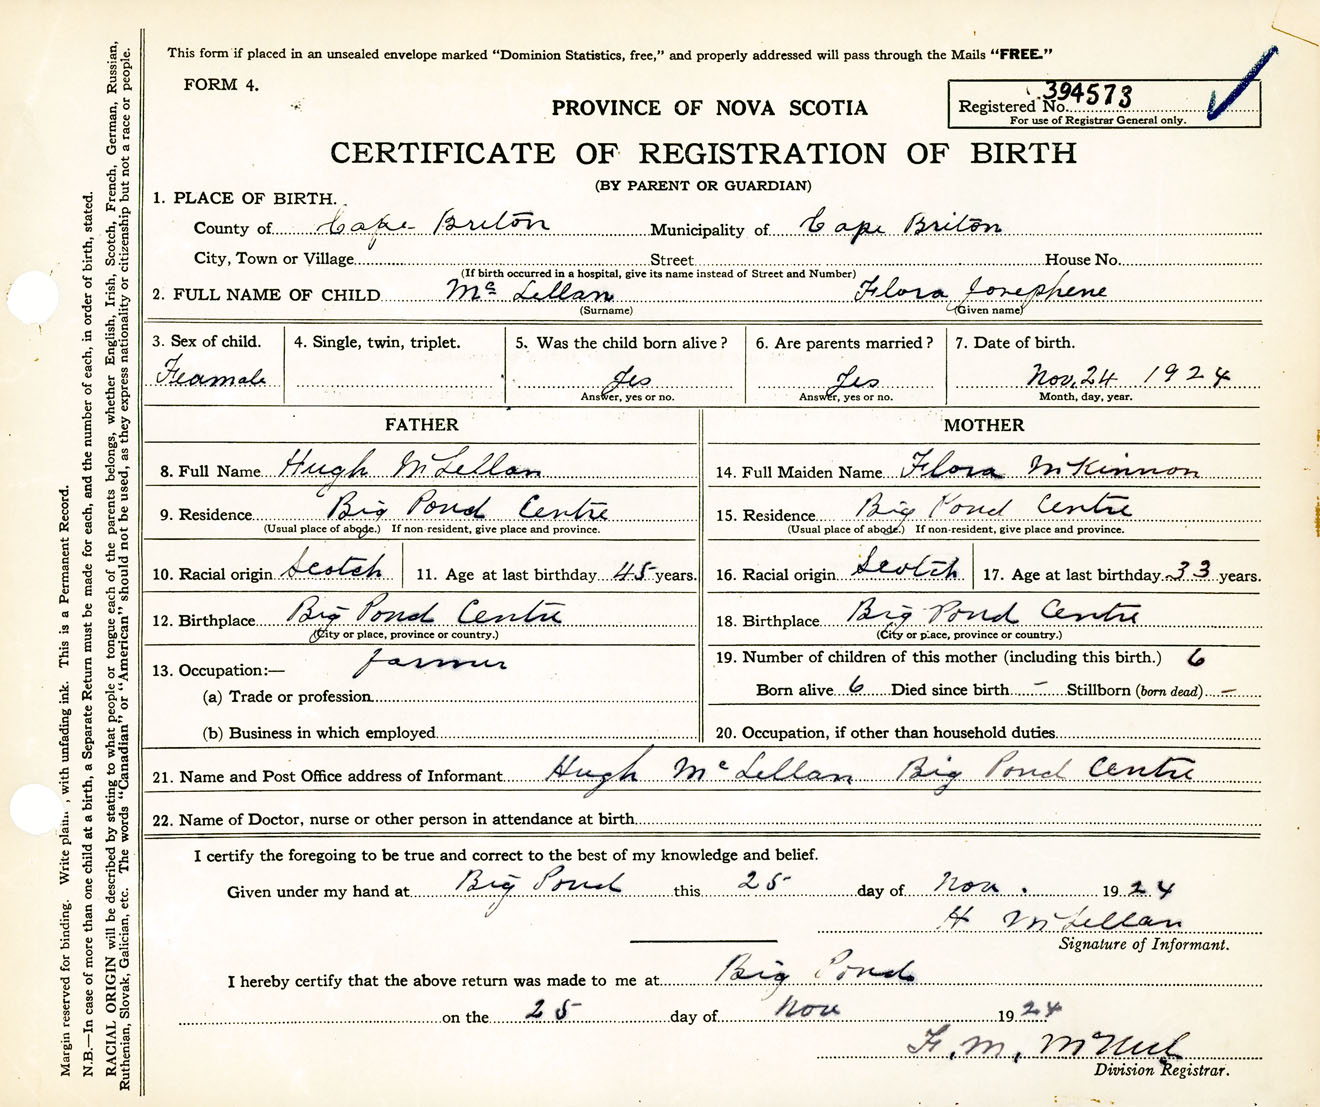 This form if placed in an unsealed envelope marked “Dominion Statistics, free,” and properly addressed will pass through the Mails “FREE.”
FORM 4.
PROVINCE OF NOVA SCOTIA
Registered No. 394573
For use of Registrar General only.
CERTIFICATE OF REGISTRATION OF BIRTH
(BY PARENT OR GUARDIAN)
1. PLACE OF BIRTH.
County of Cape Briton Municipality of Cape Briton
City, Town or Village Street House No.
(If birth occurred in a hospital, give its name instead of Street and Number)
2. FULL NAME OF CHILD Mc Lellan Flora Josephene
(Surname) (Given name)
3. Sex of child. 4. Single, twin, triplet. 5. Was the child born alive? 6. Are parents married? 7. Date of birth.
Feamale Yes Yes Nov. 24 1924
Answer, yes or no. Answer, yes or no. Month, day, year.
FATHER
8. Full Name Hugh McLellan
9. Residence Big Pond Centre
(Usual place of abode.) If non-resident, give place and province.
10. Racial origin Scotch 11. Age at last birthday 45 years.
12. Birthplace Big Pond Centre
(City or place, province or country.)
13. Occupation:— farmer
(a) Trade or profession
(b) Business in which employed
MOTHER
14. Full Maiden Name Flora McKinnon
15. Residence Big Pond Centre
(Usual place of abode.) If non-resident, give place and province.
16. Racial origin Scotch 17. Age at last birthday 33 years.
18. Birthplace Big Pond Centre
(City or place, province or country.)
19. Number of children of this mother (including this birth.) 6
Born alive 6 Died since birth – Stillborn (born dead) –
20. Occupation, if other than household duties
21. Name and Post Office address of Informant Hugh McLellan Big Pond Centre
22. Name of Doctor, nurse or other person in attendance at birth
I certify the foregoing to be true and correct to the best of my knowledge and belief.
Given under my hand at Big Pond this 25 day of Nov. 1924
H McLellan
Signature of Informant.
I hereby certify that the above return was made to me at Big Pond
on the 25 day of Nov 1924
F. M. McNeil
Division Registrar.
Margin reserved for binding. Write plain, with unfading ink. This is a Permanent Record.
N.B.—In case of more than one child at a birth, a Separate Return must be made for each, and the number of each, in order of birth, stated.
RACIAL ORIGIN will be described by stating to what people or tongue each of the parents belongs, whether English, Irish, Scotch, French, German, Russian,
Ruthenian, Slovak, Galician, etc. The words “Canadian” or “American” should not be used, as they express nationality or citizenship but not a race or people.